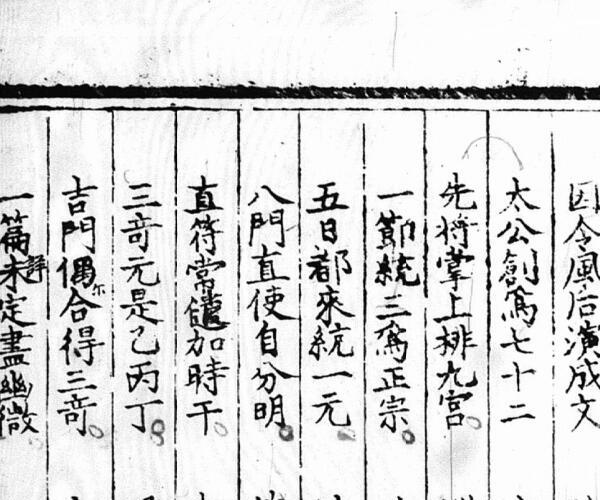 因令風后演成文
太公創爲七十二
先将掌上排九宮
一節統三爲正宗
五日都來統一元
八門直使自分明
直符常遣加時干
三竒元是乙丙丁
吉門偶尔合得三竒
一篇未詳定盡幽微